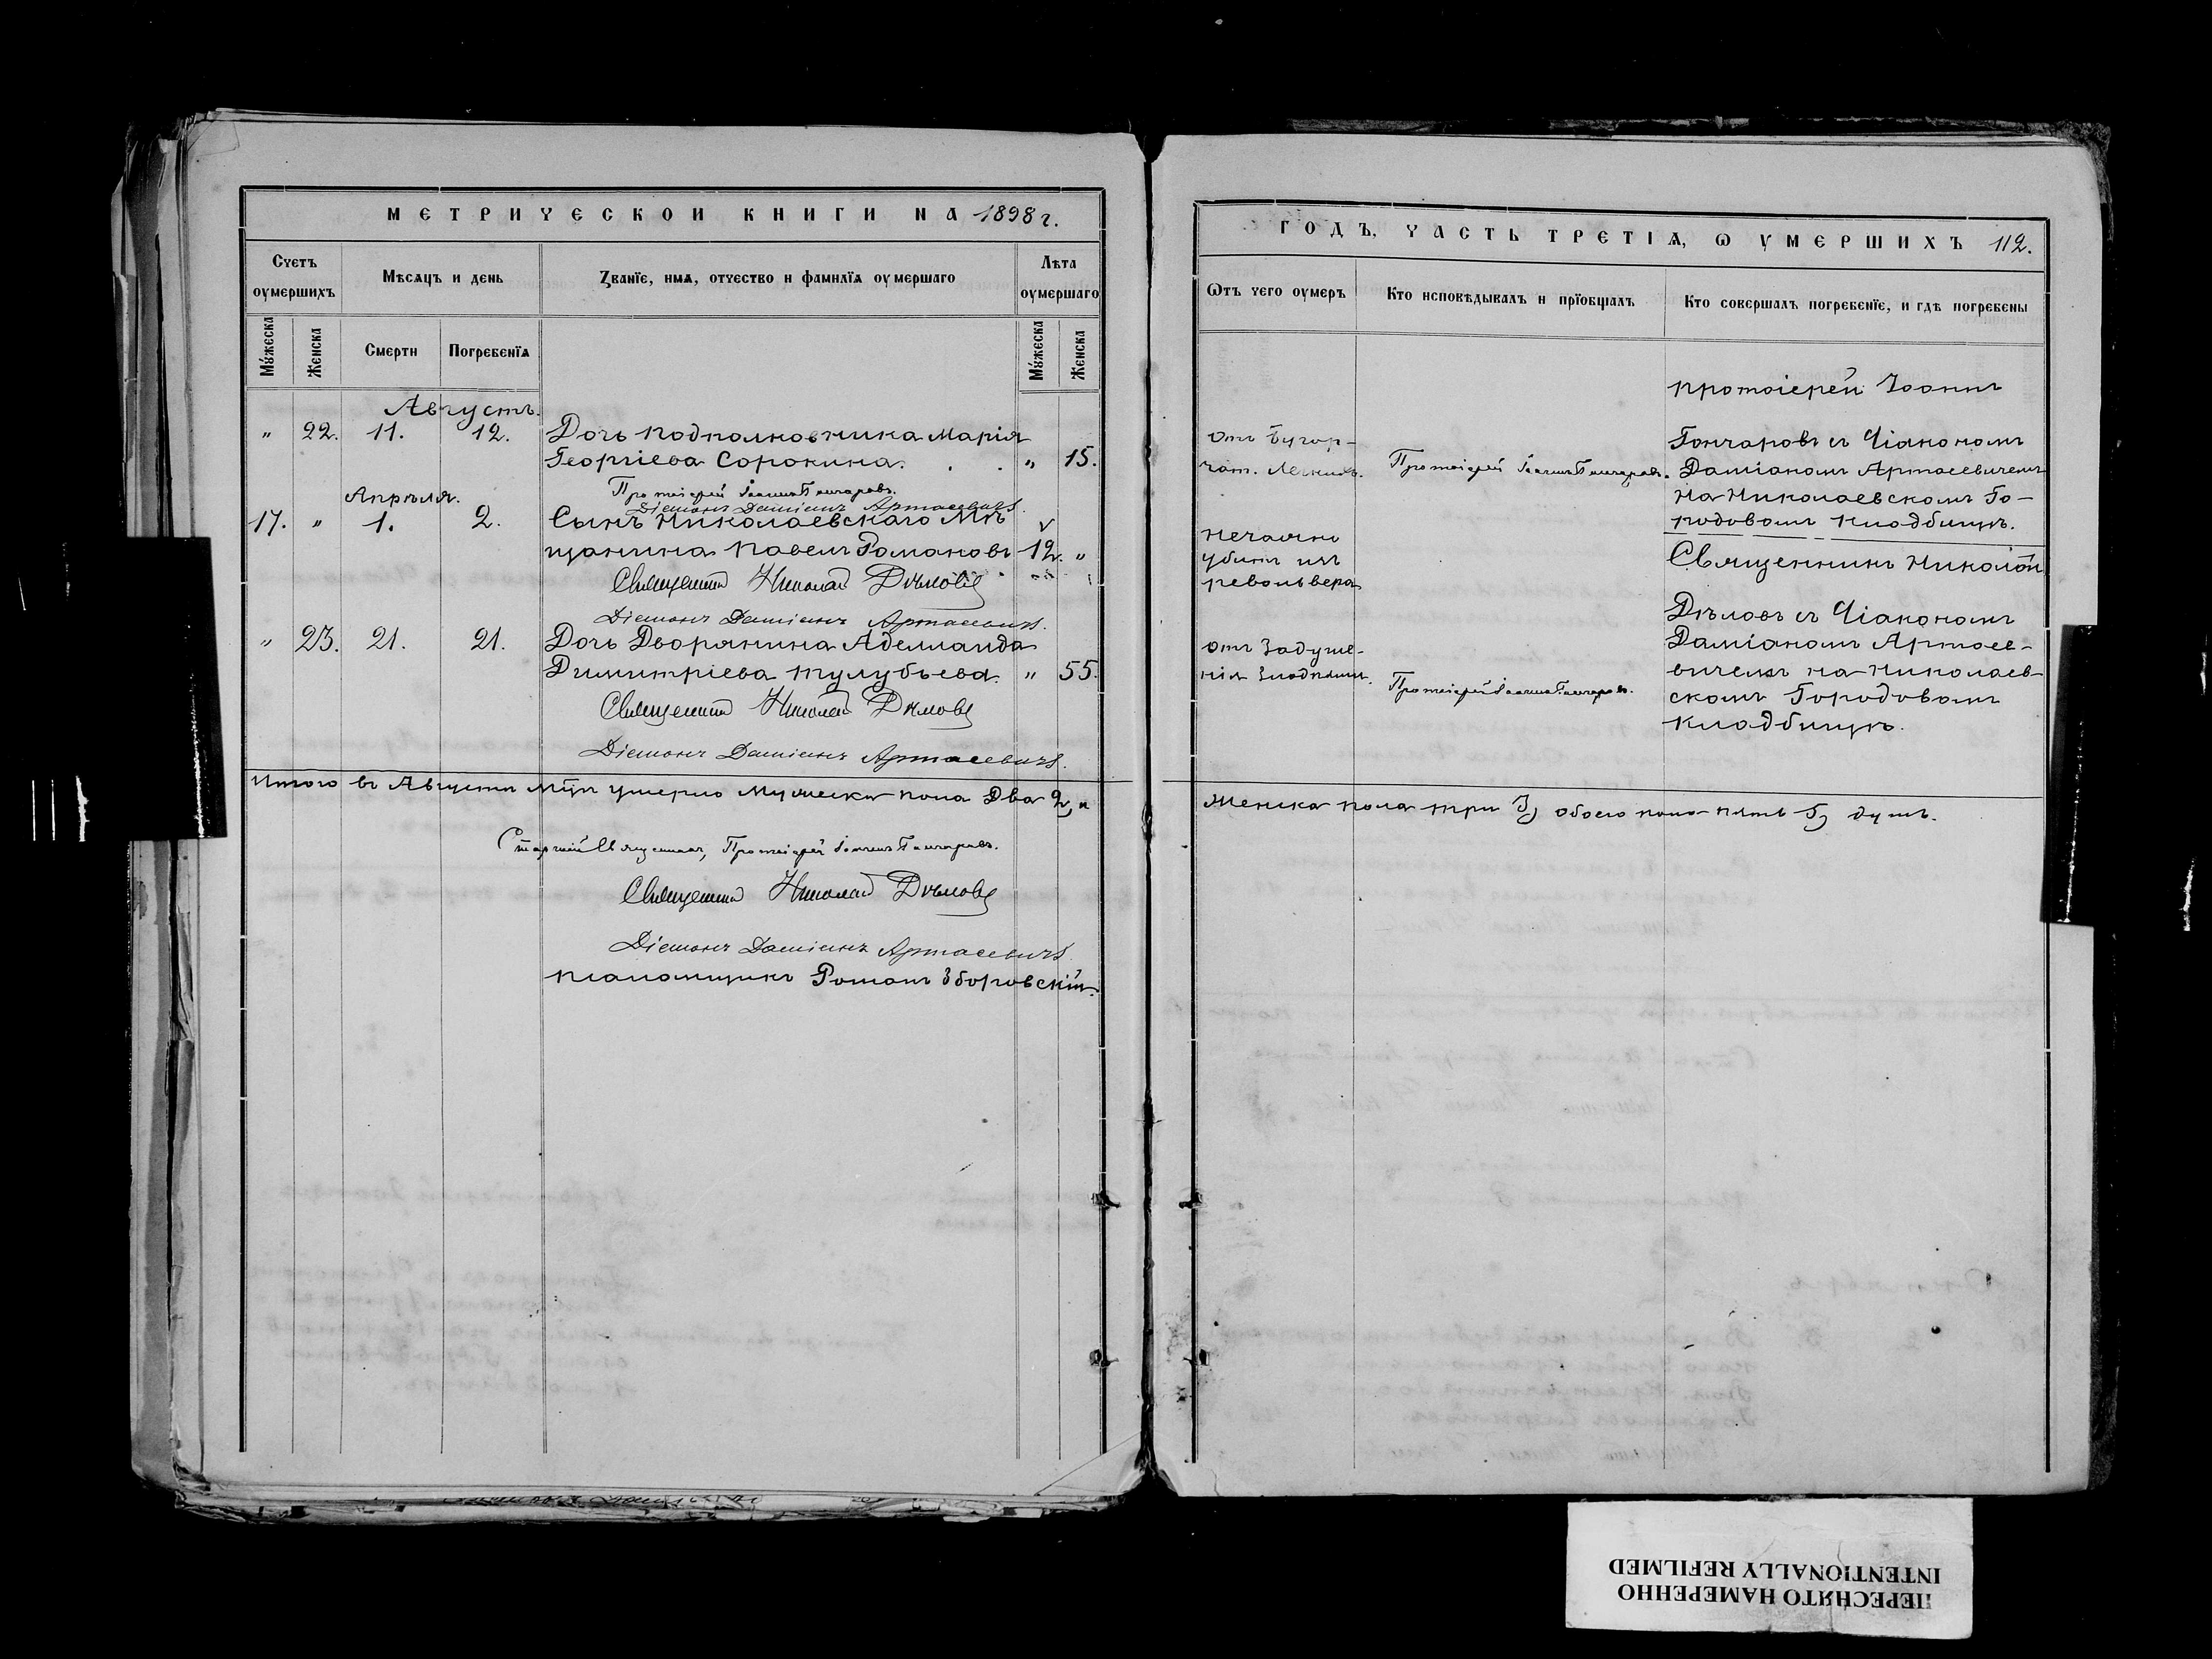 МЕТРИЧЕСКОЙ КНИГИ НА 1898 г.
Счетъ оумершихъ
Мѣсяцъ и день
Званїе, имѧ, отчество и фамилїѧ оумершаго
Лѣта оумершаго
Мꙋжеска
Женска
Смерти
Погребенїѧ
Мꙋжеска
Женска
Августъ.
" 22. 11. 12. Дочь подполковника Марія
Георгіева Сорокина. . . " 15.
Протоіерей Іоаннъ Гончаровъ.
Діаконъ Даміанъ Артасевичъ.
Апрѣля.
17. " 1. 2. Сынъ Николаевскаго Мѣ
щанина Павелъ Романовъ 12. "
Священникъ Николай Дѣловъ
Діаконъ Даміанъ Артасевичъ.
" 23. 21. 21. Дочь Дворянина Аделаида
Димитріева Тулубьева. " 55.
Священникъ Николай Дѣловъ
Діаконъ Даміанъ Артасевичъ.
Итого въ Августѣ мцѣ умерло Мужеска пола Два 2, и
Старшій Священникъ, Протоіерей Іоаннъ Гончаровъ.
Священникъ Николай Дѣловъ
Діаконъ Даміанъ Артасевичъ.
Псаломщикъ Романъ Зборовскій.
ГОДЪ, ЧАСТЬ ТРЕТІѦ, Ѡ УМЕРШИХЪ 112.
Ѿтъ чего оумеръ
Кто исповѣдывалъ и прїобщалъ
Кто совершалъ погребенїе, и гдѣ погребены
Протоіерей Іоаннъ
отъ бугор-
чат. легкихъ.
Протоіерей Іоаннъ Гончаровъ.
Гончаровъ съ Діакономъ
Даміаномъ Артасевичемъ
На Николаевскомъ Го-
родовомъ кладбищѣ.
нечаянно
убитъ изъ
револьвера
Священникъ Николай
Дѣловъ съ Діакономъ
Даміаномъ Артасе-
вичемъ на Николаев-
скомъ Городовомъ
кладбищѣ.
отъ Задуше-
нія
Протоіерей Іоаннъ Гончаровъ.
Женска пола три 3, обоего пола пять 5, душъ.
ПЕРЕСНЯТО НАМЕРЕННО
INTENTIONALLY REFILMED